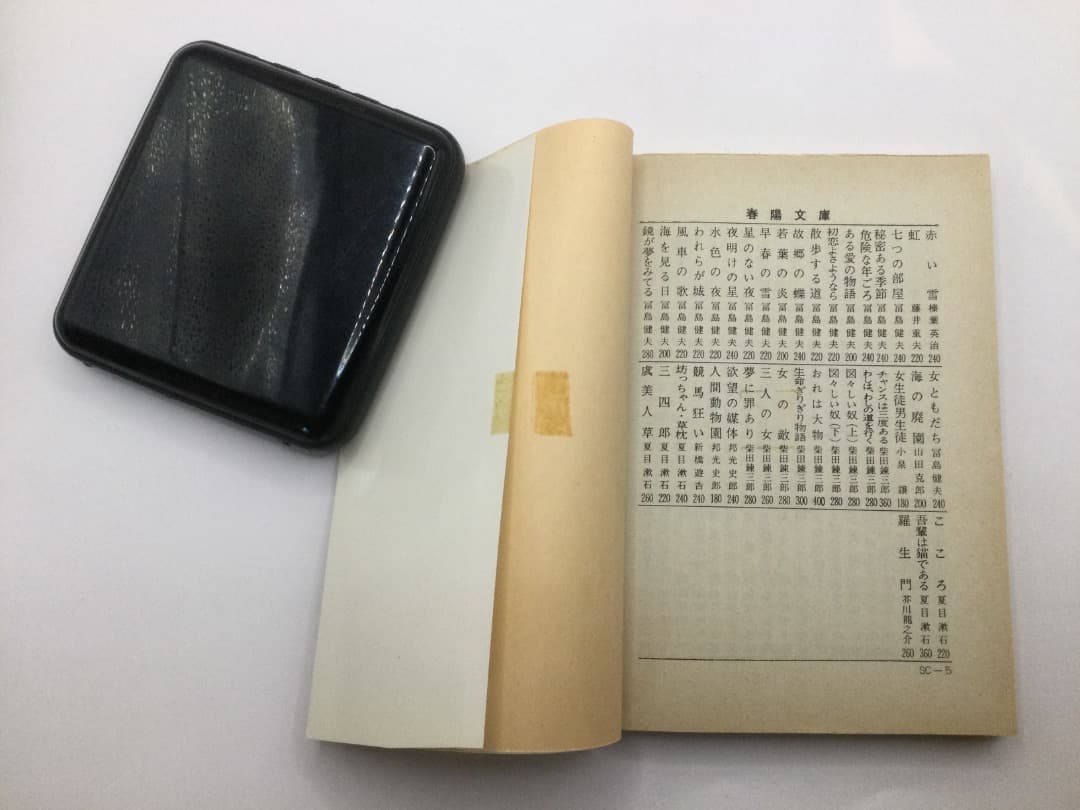 春陽文庫
赤い雪 榛葉英治 240
虹 藤井重夫 220
七つの部屋 冨島健夫 240
秘密ある季節 冨島健夫 240
危険な年ごろ 冨島健夫 240
ある愛の物語 冨島健夫 200
初恋よさようなら 冨島健夫 220
散歩する道 冨島健夫 220
故郷の蝶 冨島健夫 240
若葉の炎 冨島健夫 200
早春の雪 冨島健夫 220
星のない夜 冨島健夫 220
夜明けの星 冨島健夫 240
水色の夜 冨島健夫 220
われらが城 冨島健夫 220
風車の歌 冨島健夫 220
海を見る日 冨島健夫 200
鏡が夢をみてる 冨島健夫 280
女ともだち 冨島健夫 240
海の廃園 山田克郎 200
女生徒男生徒 小泉譲 180
チャンスは三度ある 柴田錬三郎 360
わほ、わしの道を行く 柴田錬三郎 280
図々しい奴(上) 柴田錬三郎 280
図々しい奴(下) 柴田錬三郎 280
おれは大物 柴田錬三郎 400
生命ぎりぎり物語 柴田錬三郎 300
女の敵 柴田錬三郎 280
三人の女 柴田錬三郎 260
夢に罪あり 柴田錬三郎 280
欲望の媒体 邦光史郎 240
人間動物園 邦光史郎 180
競馬狂い 新橋遊吉 240
坊っちゃん・草枕 夏目漱石 240
三四郎 夏目漱石 220
虞美人草 夏目漱石 260
こころ 夏目漱石 220
吾輩は猫である 夏目漱石 360
羅生門 芥川龍之介 260
SC—5